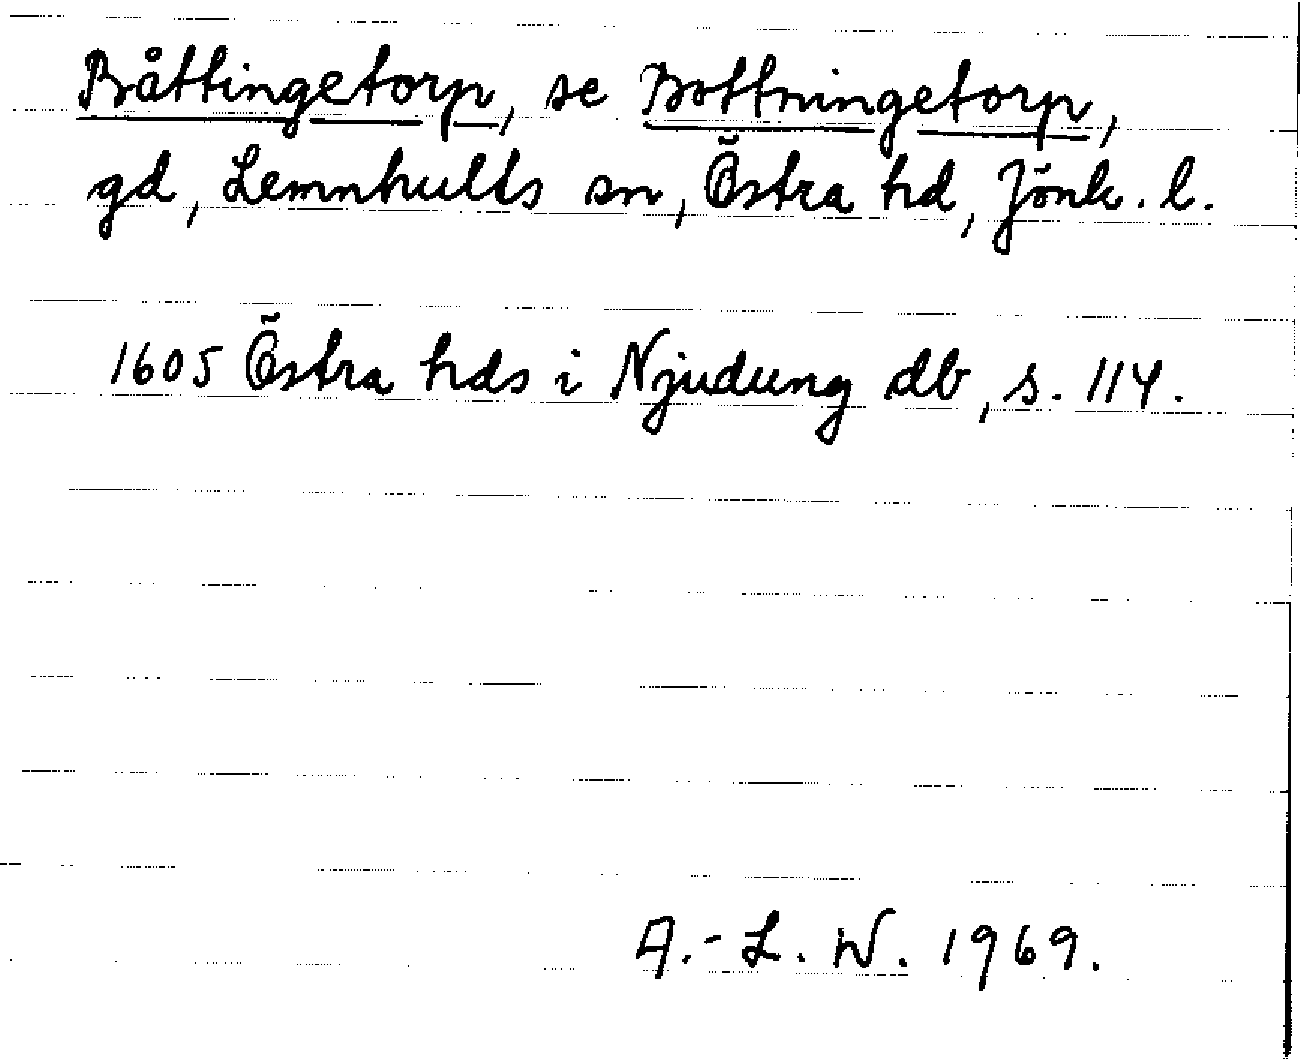 Båttingetorp, se Bottningetorp,
gd, Lemnhults sn, Östra hd, Jönk. l.
1605 Östra hds i Njudung db, s. 114.
A.-L. W. 1969.